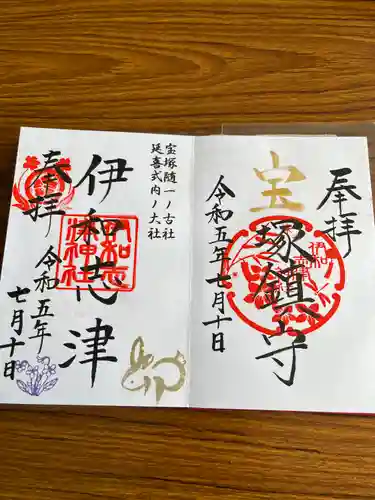 奉拝
宝塚鎮守
令和五年七月十日
宝塚随一ノ古社
延喜式内ノ大社
伊和志津
伊和志
津神社
奉拝
令和五年
七月十日